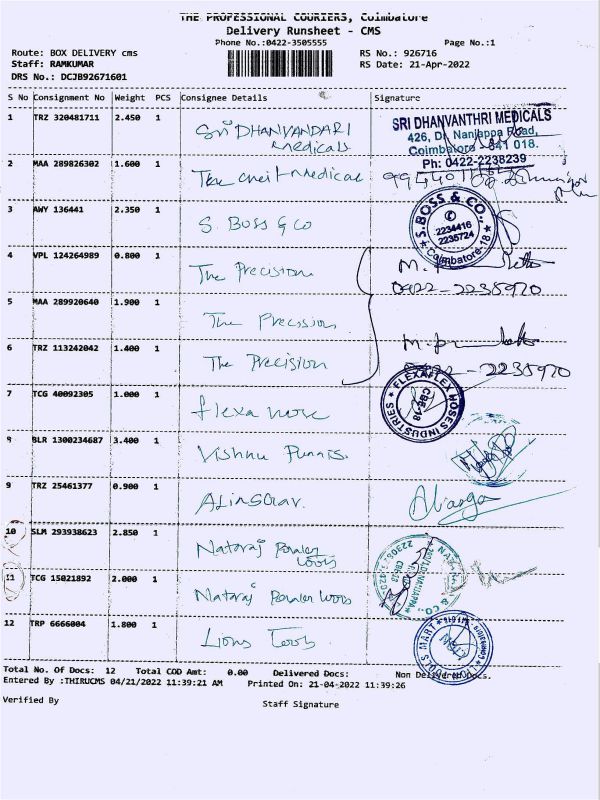 THE PROFESSIONAL COURIERS, Coimbatore
Delivery Runsheet - CMS
Phone No.:0422-3505555
Page No.:1
Route: BOX DELIVERY cms
RS No.: 926716
Staff: RAMKUMAR
RS Date: 21-Apr-2022
DRS No.: DCJB92671601
S No Consignment No Weight PCS Consignee Details Signature
1 TRZ 320481711 2.450 1 Sri DHANVANDARI
medicals
SRI DHANVANTHRI MEDICALS
426, Dr. Nanjappa Road,
Coimbatore - 641 018.
Ph: 0422-2238239
2 MAA 289826302 1.600 1 The medical
3 AWY 136441 2.350 1 S. Boss & Co
S. BOSS & CO.,
2234416
2235724
Coimbatore-18
4 VPL 124264989 0.800 1 The Precision
0422-2235970
5 MAA 289920640 1.900 1 The Precision
6 TRZ 113242042 1.400 1 The Precision
0422-2235970
7 TCG 40092305 1.000 1 flexa hose
FLEXAFLEX HOSES INDUSTRIES
CBE-18
8 BLR 1300234687 3.400 1 Vishnu
9 TRZ 25461377 0.900 1
10 SLM 293938623 2.850 1 Nataraj Power
Tools
11 TCG 15021892 2.000 1 Nataraj Power Tools
12 TRP 6666004 1.800 1 Lions Tools
LION TOOLS MART
Total No. Of Docs: 12 Total COD Amt: 0.00 Delivered Docs: Non Delivered Docs.
Entered By :THIRUCMS 04/21/2022 11:39:21 AM Printed On: 21-04-2022 11:39:26
Verified By
Staff Signature